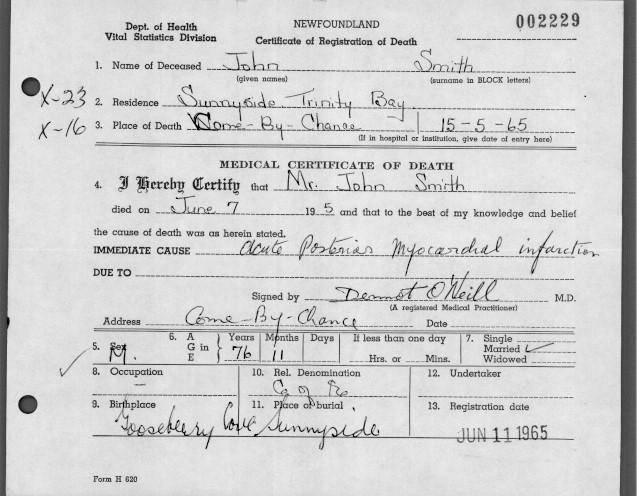 Dept. of Health
Vital Statistics Division
NEWFOUNDLAND
Certificate of Registration of Death
002229
1. Name of Deceased John Smith
(given names) (surname in BLOCK letters)
X-23
2. Residence Sunnyside Trinity Bay.
X-16
3. Place of Death Come-By-Chance 15-5-65
(If in hospital or institution, give date of entry here)
MEDICAL CERTIFICATE OF DEATH
4. I Hereby Certify that Mr. John Smith
died on June 7 19 5 and that to the best of my knowledge and belief
the cause of death was as herein stated.
IMMEDIATE CAUSE acute Posterior Myocardial infarction
DUE TO
Signed by Dermot O'Neill M.D.
(A registered Medical Practitioner)
Address Come-By-Chance Date
5. Sex M. 6. AGE in Years 76 Months 11 Days If less than one day Hrs. or Mins. 7. Single Married ✓ Widowed
8. Occupation – 10. Rel. Denomination C of E 12. Undertaker
9. Birthplace Gooseberry Cove 11. Place of burial Sunnyside 13. Registration date JUN 11 1965
Form H 620